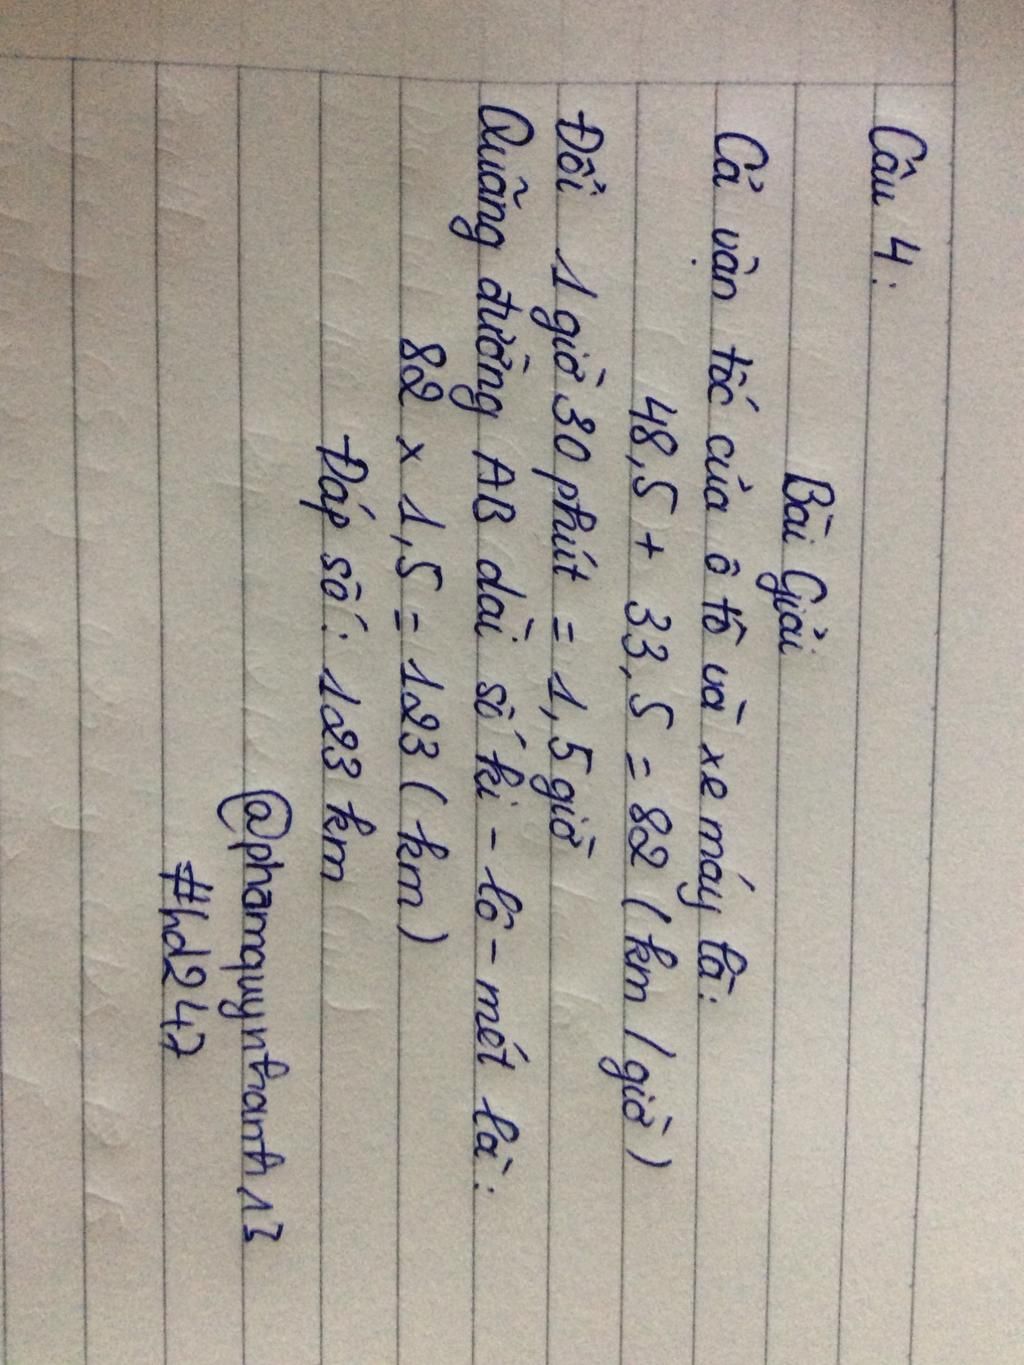 Câu 4:
Bài Giải
Cả vận tốc của ô tô và xe máy là:
48,5 + 33,5 = 82 (km / giờ)
Đổi 1 giờ 30 phút = 1,5 giờ
Quãng đường AB dài số ki-lô-mét là:
82 x 1,5 = 123 (km)
Đáp số: 123 km
@phamquynhanh13
#hd247